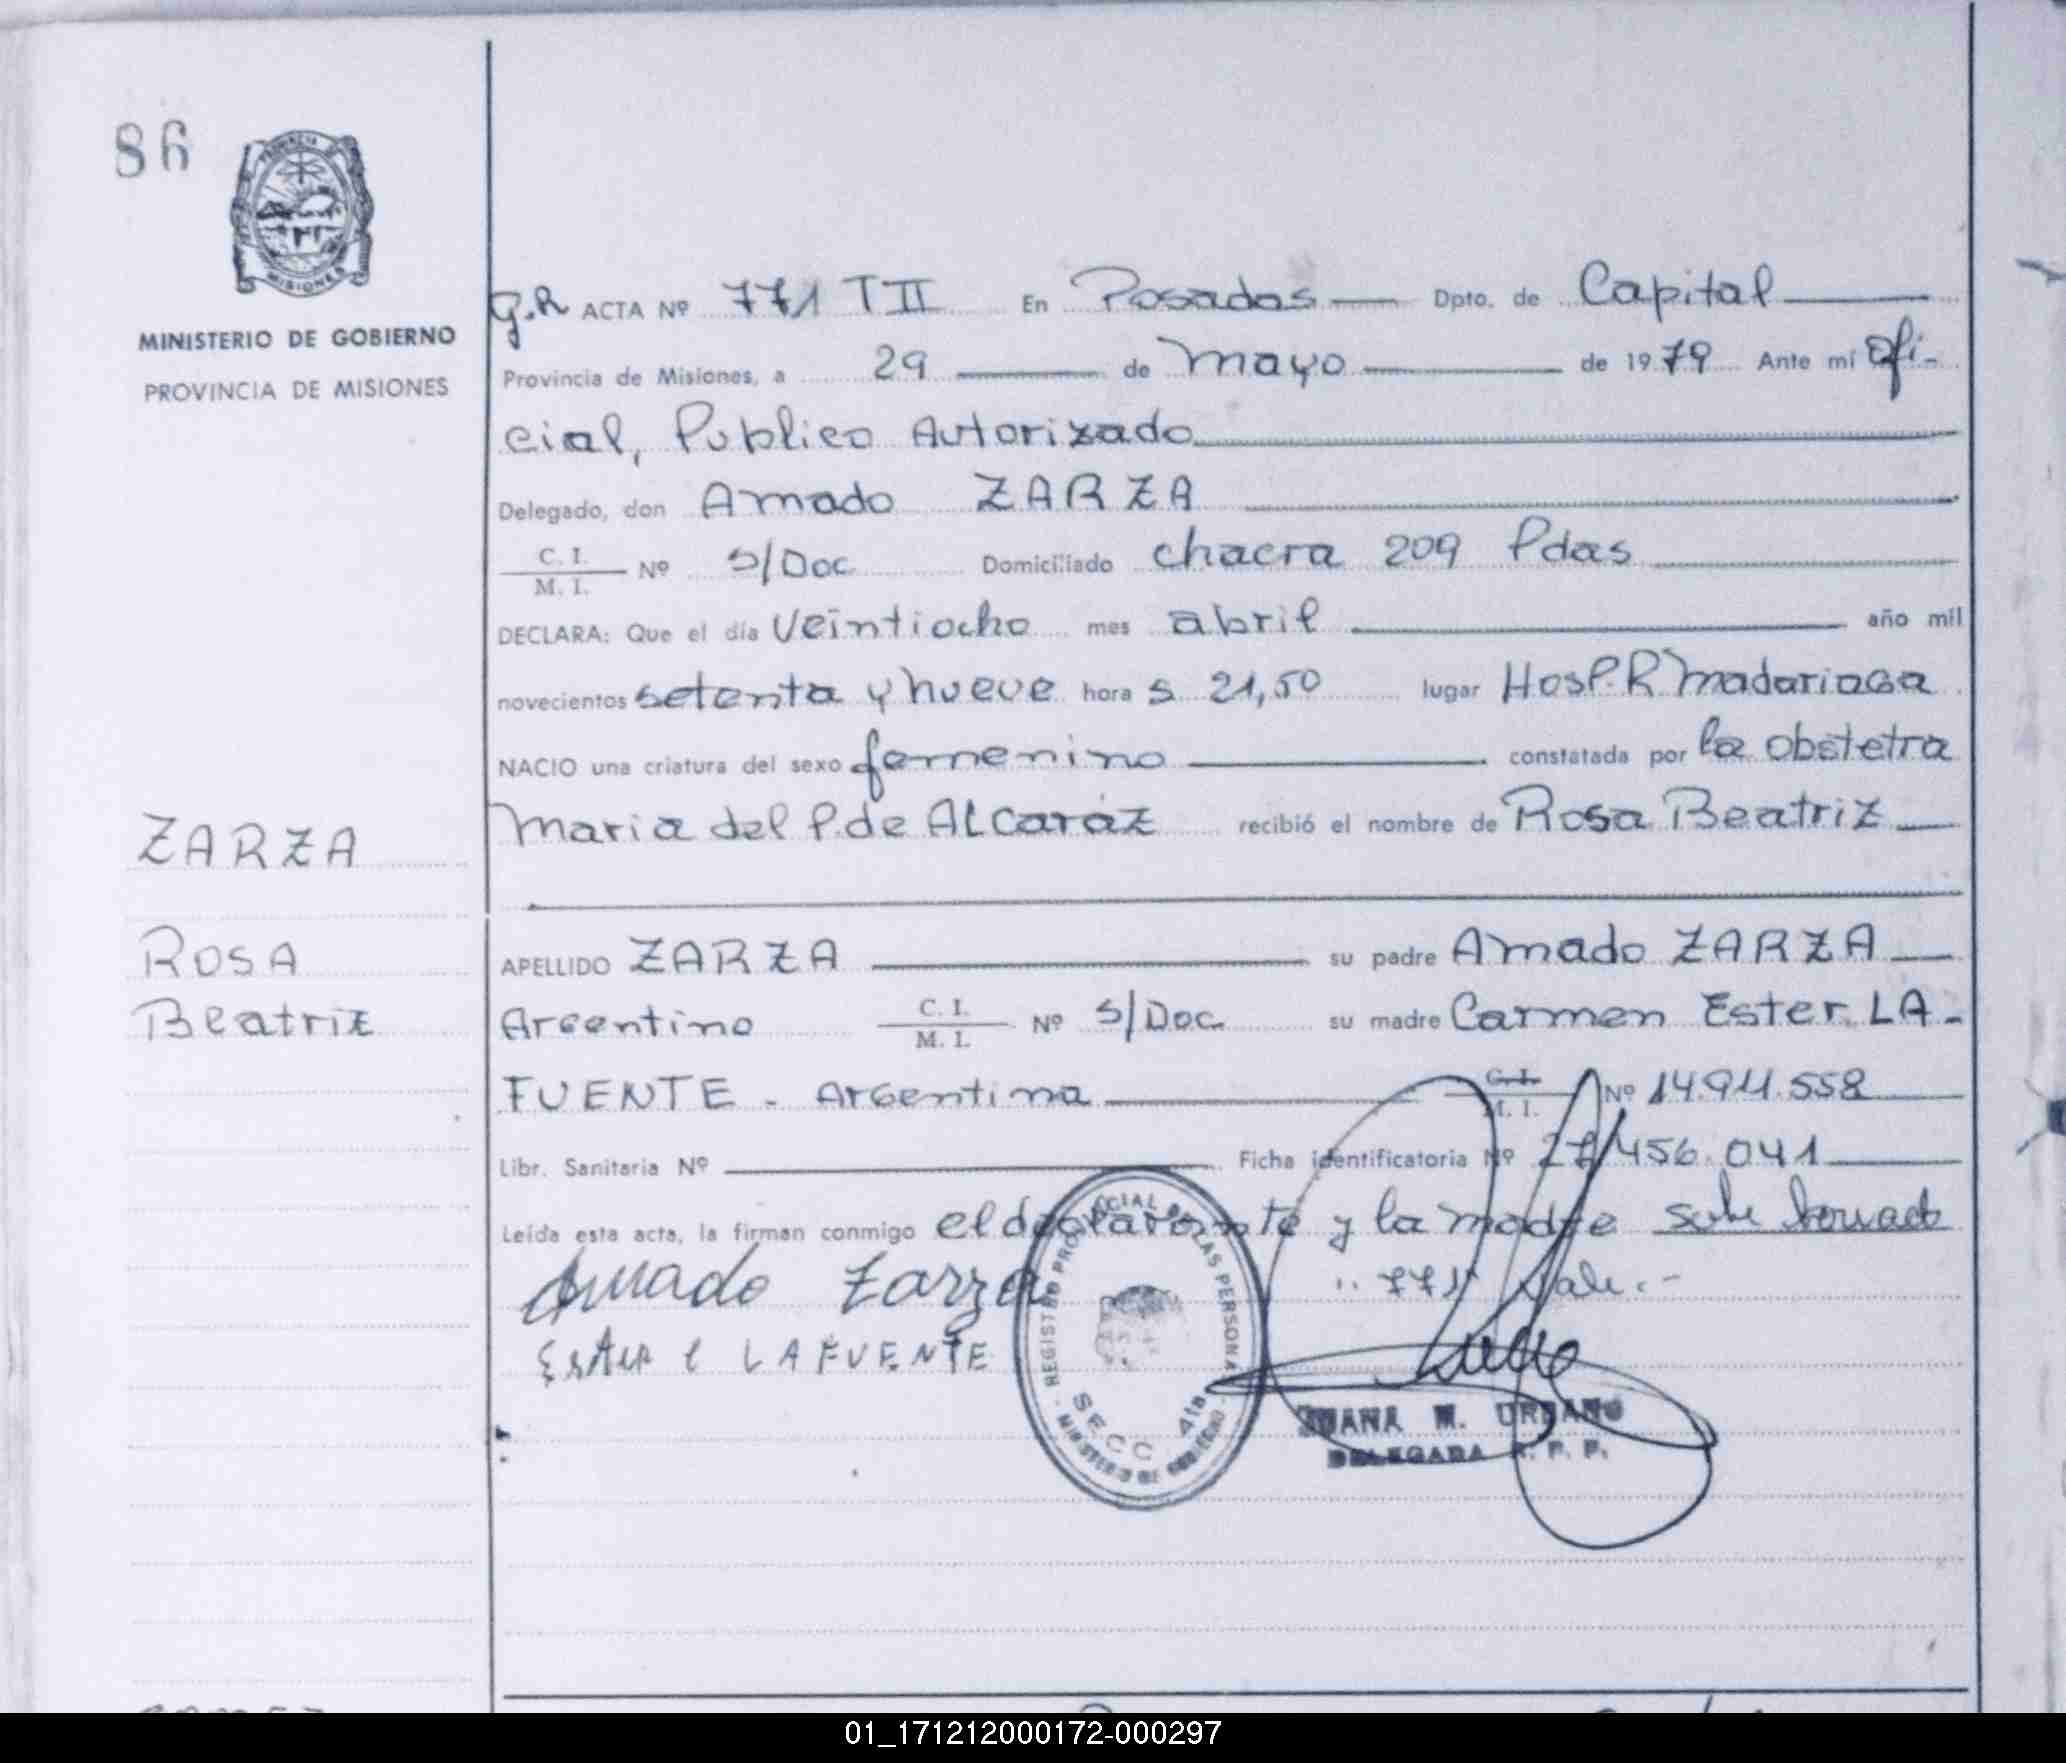 86
PROVINCIA DE
MISIONES
MINISTERIO DE GOBIERNO
PROVINCIA DE MISIONES
g.R ACTA Nº 771 TII En Posadas Dpto. de Capital
Provincia de Misiones, a 29 de mayo de 1979 Ante mí Ofi-
cial, Publico Autorizado
Delegado, don Amado ZARZA
C. I.
M. I. Nº S/Doc Domiciliado chacra 209 Pdas
DECLARA: Que el día Veintiocho mes abril año mil
novecientos setenta y nueve hora s 21,50 lugar Hosp. R Madariaga
NACIO una criatura del sexo femenino constatada por la obstetra
Maria del P. de ALCaraz recibió el nombre de Rosa Beatriz
ZARZA
ROSA
Beatriz
APELLIDO ZARZA su padre Amado ZARZA
Argentino C. I.
M. I. Nº S/Doc. su madre Carmen Ester LA-
FUENTE - Argentina C. I.
M. I. Nº 14.94.558
Libr. Sanitaria Nº Ficha identificatoria Nº 27.456.041
Leída esta acta, la firman conmigo el declarante y la madre sobre borrado
"771" Vale.-
Amado Zarza
Ester C LAFUENTE
REGISTRO PROVINCIAL DE LAS PERSONAS
SECC 4ta
MINISTERIO DE GOBIERNO
JUANA M. URBANO
DELEGADA R. P. P.
01_171212000172-000297